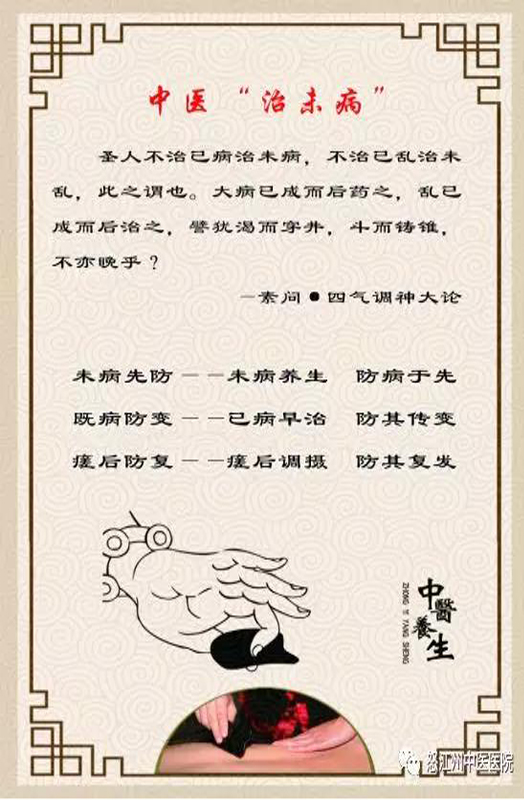 中医“治未病”
圣人不治已病治未病，不治已乱治未
乱，此之谓也。大病已成而后药之，乱已
成而后治之，譬犹渴而穿井，斗而铸锥，
不亦晚乎？
—素问●四气调神大论
未病先防——未病养生 防病于先
既病防变——已病早治 防其传变
瘥后防复——瘥后调摄 防其复发
中醫養生
ZHONG YI YANG SHENG
怒江州中医医院